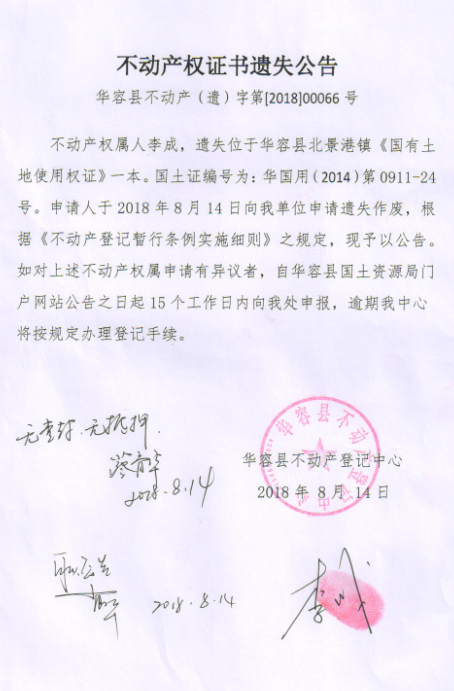 不动产权证书遗失公告
华容县不动产（遗）字第[2018]00066 号
不动产权属人李成，遗失位于华容县北景港镇《国有土
地使用权证》一本。国土证编号为：华国用（2014）第 0911-24
号。申请人于 2018 年 8 月 14 日向我单位申请遗失作废，根
据《不动产登记暂行条例实施细则》之规定，现予以公告。
如对上述不动产权属申请有异议者，自华容县国土资源局门
户网站公告之日起 15 个工作日内向我处申报，逾期我中心
将按规定办理登记手续。
无查封.无抵押.
2018.8.14
华容县不动产登记中心
华容县不动产登记中心
2018 年 8 月 14 日
2018.8.14
李成